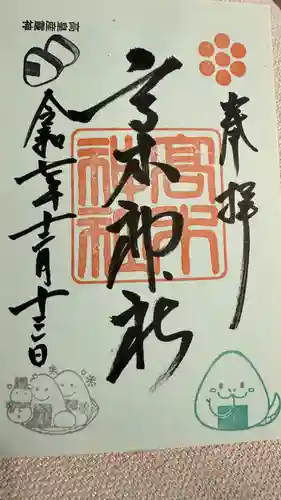 奉拝
高木神社
高木
神社
令和七年十二月十三日
高皇産靈神